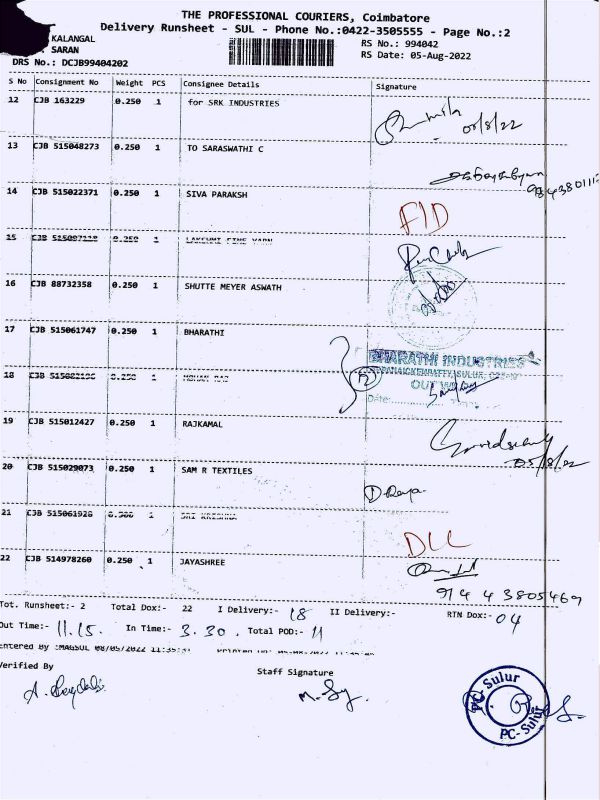 THE PROFESSIONAL COURIERS, Coimbatore
Delivery Runsheet - SUL - Phone No.:0422-3505555 - Page No.:2
KALANGAL
RS No.: 994042
SARAN
RS Date: 05-Aug-2022
DRS No.: DCJB99404202
S No Consignment No Weight PCS Consignee Details Signature
12 CJB 163229 0.250 1 for SRK INDUSTRIES
08/8/22
13 CJB 515048273 0.250 1 TO SARASWATHI C
14 CJB 515022371 0.250 1 SIVA PARAKSH
FID
15 CJB 0.250 1 LAKSHMI FINE YARN
16 CJB 88732358 0.250 1 SHUTTE MEYER ASWATH
17 CJB 515061747 0.250 1 BHARATHI
BHARATHI INDUSTRIES
OUT W
Date:
18 CJB 0.250 1
19 CJB 515012427 0.250 1 RAJKAMAL
05/8/22
20 CJB 515029073 0.250 1 SAM R TEXTILES
21 CJB 515061928 1
22 CJB 514978260 0.250 1 JAYASHREE
9144 3805469
Tot. Runsheet:- 2 Total Dox:- 22 I Delivery:- 18 II Delivery:- RTN Dox:- 04
Out Time:- 11.15. In Time:- 3.30, Total POD:- 11
Entered By :MAGSUL 08/05/2022
Verified By
Staff Signature
PC- Sulur
PC- Sulur